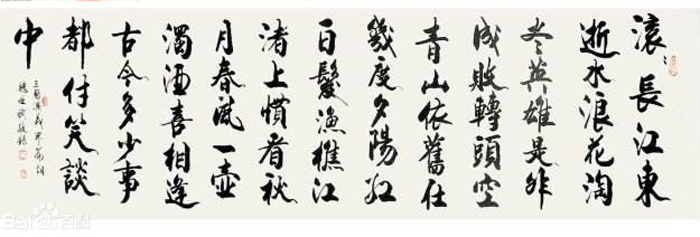 滚〻長江東
逝水浪花淘
尽英雄是非
成敗轉頭空
青山依舊在
幾度夕陽红
白髮漁樵江
渚上慣看秋
月春風一壺
濁酒喜相逢
古今多少事
都付笑談
中
三國演義開篇詞
Bai 百科